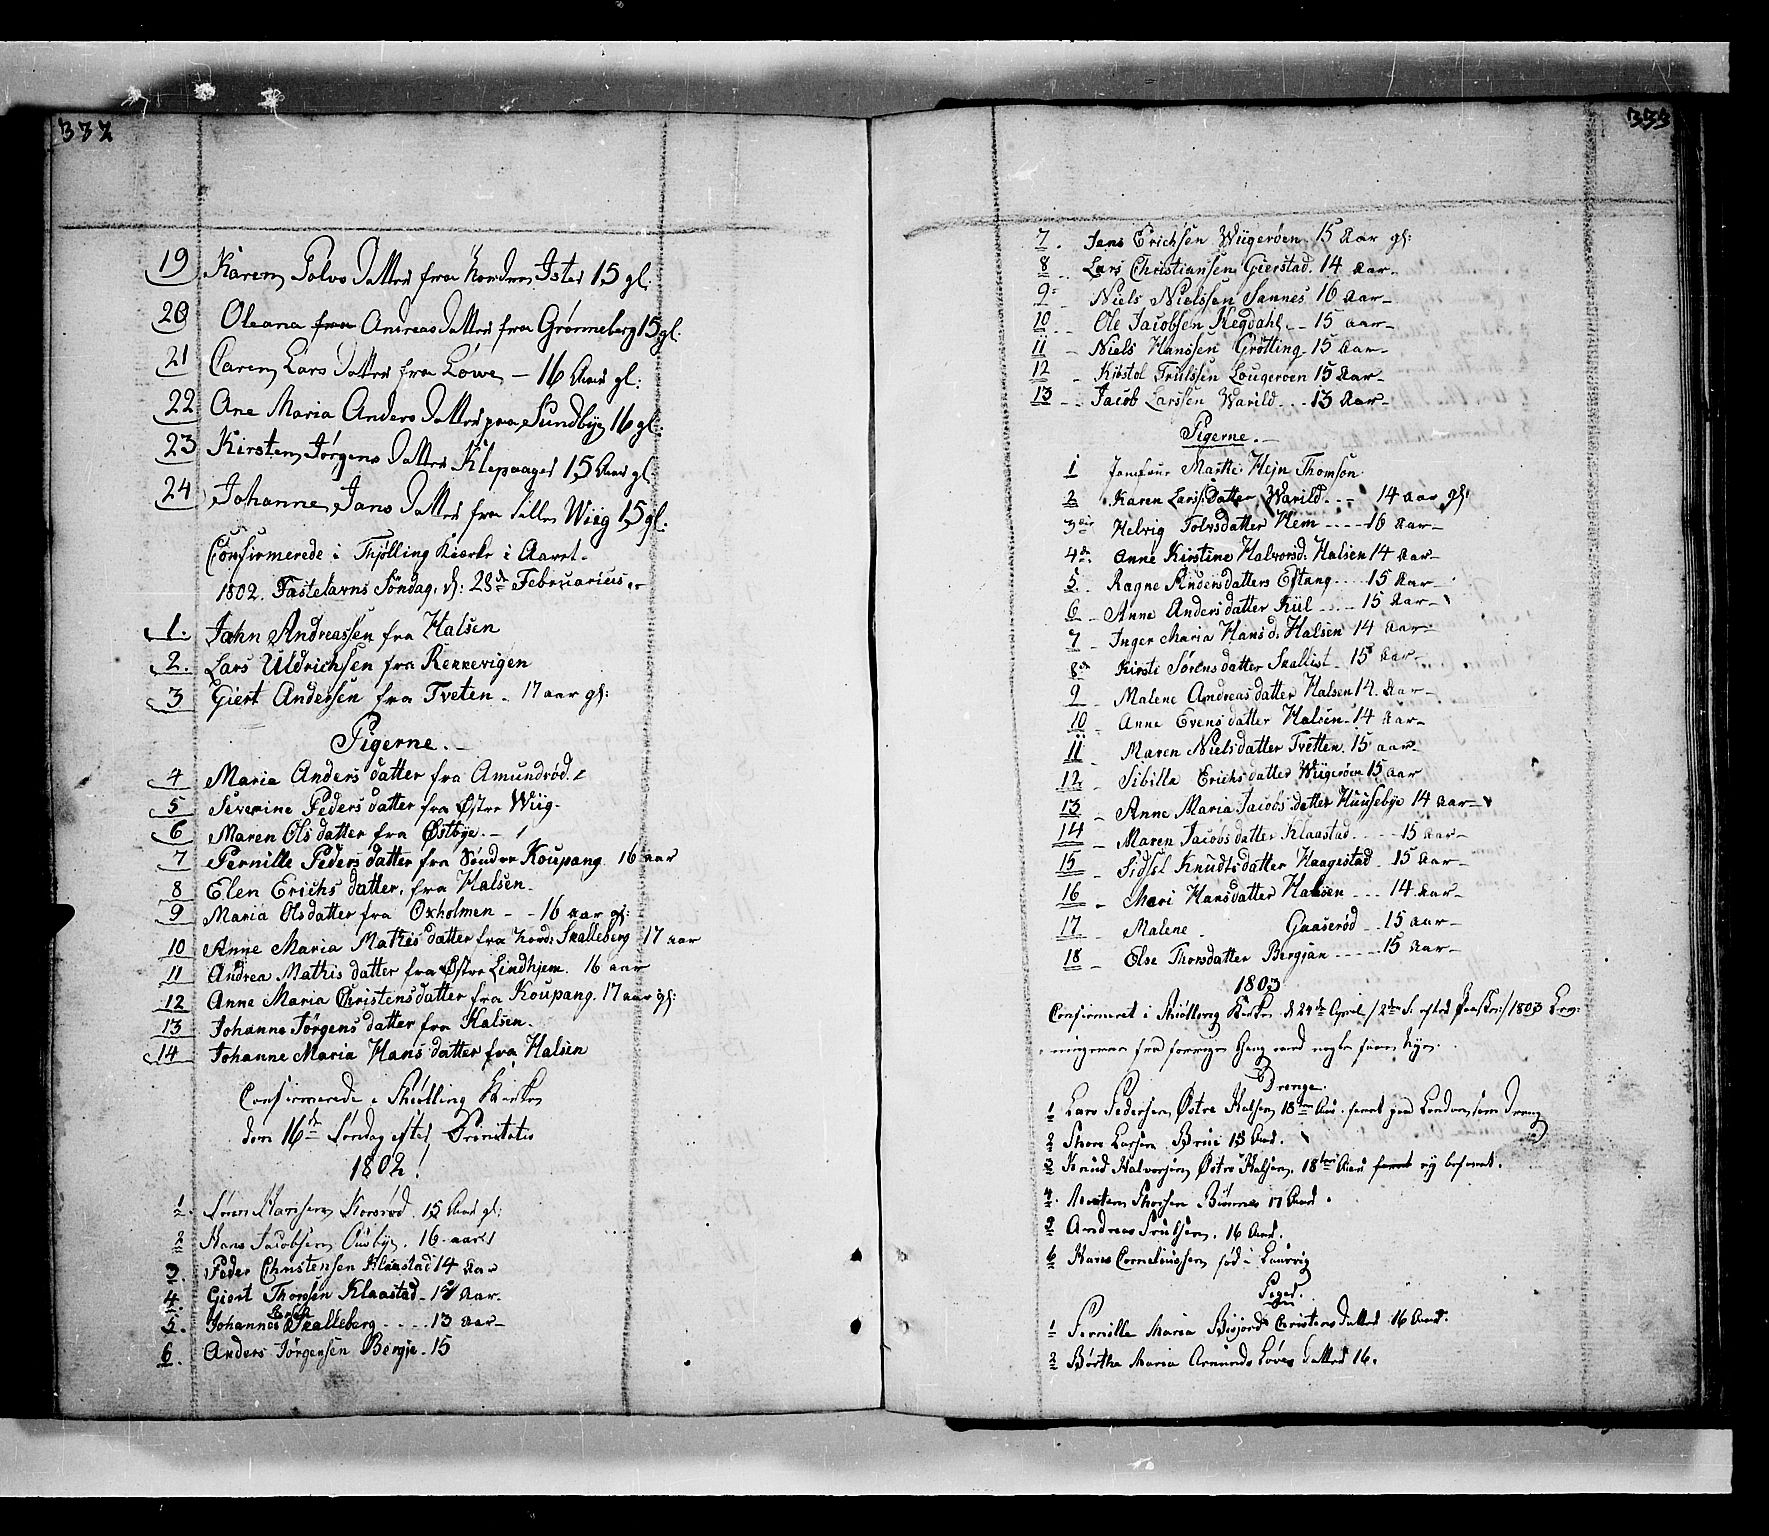 332
19 Karen Tolvs Datter fra Nordre Isted 15 gl:
20 Oleana fra Andreas Datter fra Grønneberg 15 gl.
21 Caren Lars Datter fra Løwe - 16 Aar gl:
22 Ane Maria Anders Datter paa Sundbye 16 gl:
23 Kirsten Jørgens Datter Klepaager 15 Aar gl:
24 Johanne Jans Datter fra Lille Wiig 15 gl:
Confirmerede i Thjølling Kierke i Aaret
1802. Fastelavns Søndag, d: 28de Februarius
1. Jahn Andreassen fra Halsen
2. Lars Uldrichsen fra Rekkevigen
3 Giert Andersen fra Tveten - 17 aar gl:
Pigerne.
4 Maria Anders datter fra Amundrød
5 Severine Peders datter fra Østre Wiig
6 Maren Ols datter fra Østbye
7 Pernille Peders datter fra Søndre Koupang 16 aar
8 Elen Erichs datter, fra Halsen
9 Maria Olsdatter fra Oxholmen - - 16 aar gl:
10 Anne Maria Mathis datter fra Nord: Skalleberg 17 aar
11 Andrea Mathis datter fra Østre Lindhjem. 16 aar
12 Anne Maria Christens datter fra Koupang. 17 aar gl:
13 Johanne Jørgens datter fra Halsen
14 Johanne Maria Hans datter fra Halsen
Confirmerede i Thiølling Kirke
dom 16de Søndag efter Trinitatis
1802!
1. Søren Harisen Korsrød. 15 Aar gl:
2 Hans Jacobsen Ousbye. 16 aar
3. Peder Christensen Klaastad 14 Aar
4. Giert Thorsen Klaastad - Aar.
5. Johannes Skalleberg - - - - 13 Aar
6. Anders Jørgensen Bergje - 15
333
7. Jens Erichsen Wiigerøen 15 Aar gl:
8 Lars Christiansen Gierstad. 14 Aar
9 Niels Nielssen Sannes 16 Aar
10 Ole Jacobsen Hegdahl - - 15 Aar
11 Niels Hanssen Grøtting - 15 Aar
12 Kistol Trulssen Lougerøen 15 Aar
13 Jacob Larssen Varild - - 13 Aar
Pigerne.
1 Jomfrue Marthe Hejn Thomson
2 Karen Larss: Datter Warild. - - 14 aar gl:
3 Helvig Tolvsdatter Hem - - - - 16 Aar
4 Anne Kirstine Halvorsd: Halsen 14 Aar
5. Ragne Anders datters Eftang - - - 15 Aar
6 Anne Anders datter Kiil - - - - 15 Aar
7 Inger Maria Hans d: Halsen 14 Aar
8 Kirsti Sørens datter Skallist - 15 Aar
9 Malene Andreas datter Halsen 14 Aar
10 Anne Evens datter Halsen - 14 Aar
11 Maren Nielsdatter Tvetten. 15 aar
12 Sibilla Erichs datter Wiigerøen 15 aar
13 Anne Maria Jacobs datter Huusebye 14 Aar
14 Maren Jacobs datter Klaastad. - - - - 15 Aar
15 Sidsel Knudts datter Haagestad - 15 Aar
16 Mari Hansdatter Halsen - - - 14 Aar
17 Malene - Gaaserød - 15 Aar
18 Else Thorsdatter Bergjan - - - - - 15 Aar
1803
Confirmeret i Thiølling Kirke d 24de April /2den S. efter Paaske/ 1803
fra forrige Gang med nogle faae Nye.
Drenge.
1 Lars Pedersen Østre Halsen 18 Aar. faret paa London som Dreng
2 Thore Larsen Brue 15 Aar.
3 Knud Halvorsen Østre Halsen 18 Aar faret ej befaret.
4. Morten Thorsen 17 Aar
5 Andreas Trulsen. 16 Aar.
6 Hans Corneliussen fød i Laurvig
Piger.
1 Pernille Maria Bisjords Christens datter 16 Aar.
2 Børthe Maria Amunds Løves datter 16.